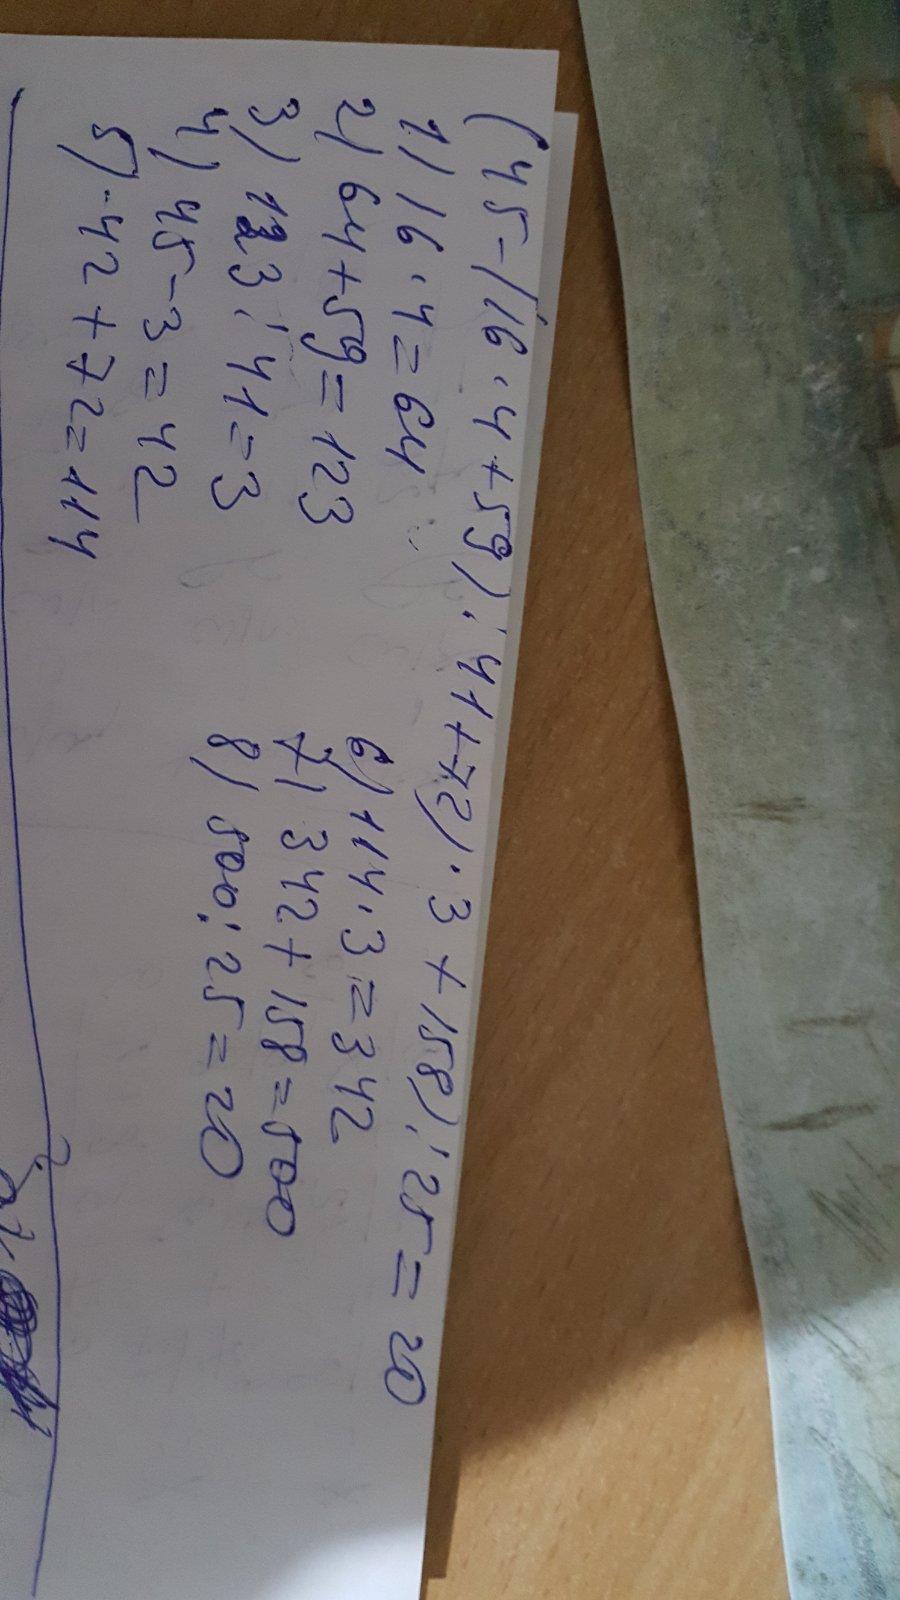 (45-(16·4+59):41+72)·3+158):25=20
1) 16·4=64
2) 64+59=123
3) 123:41=3
4) 45-3=42
5) 42+72=114
6) 114·3=342
7) 342+158=500
8) 500:25=20